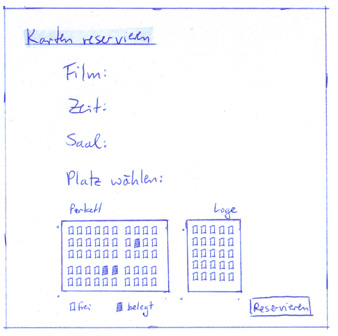 Karten reservieren
Film:
Zeit:
Saal:
Platz wählen:
Parkett Loge
frei belegt
Reservieren